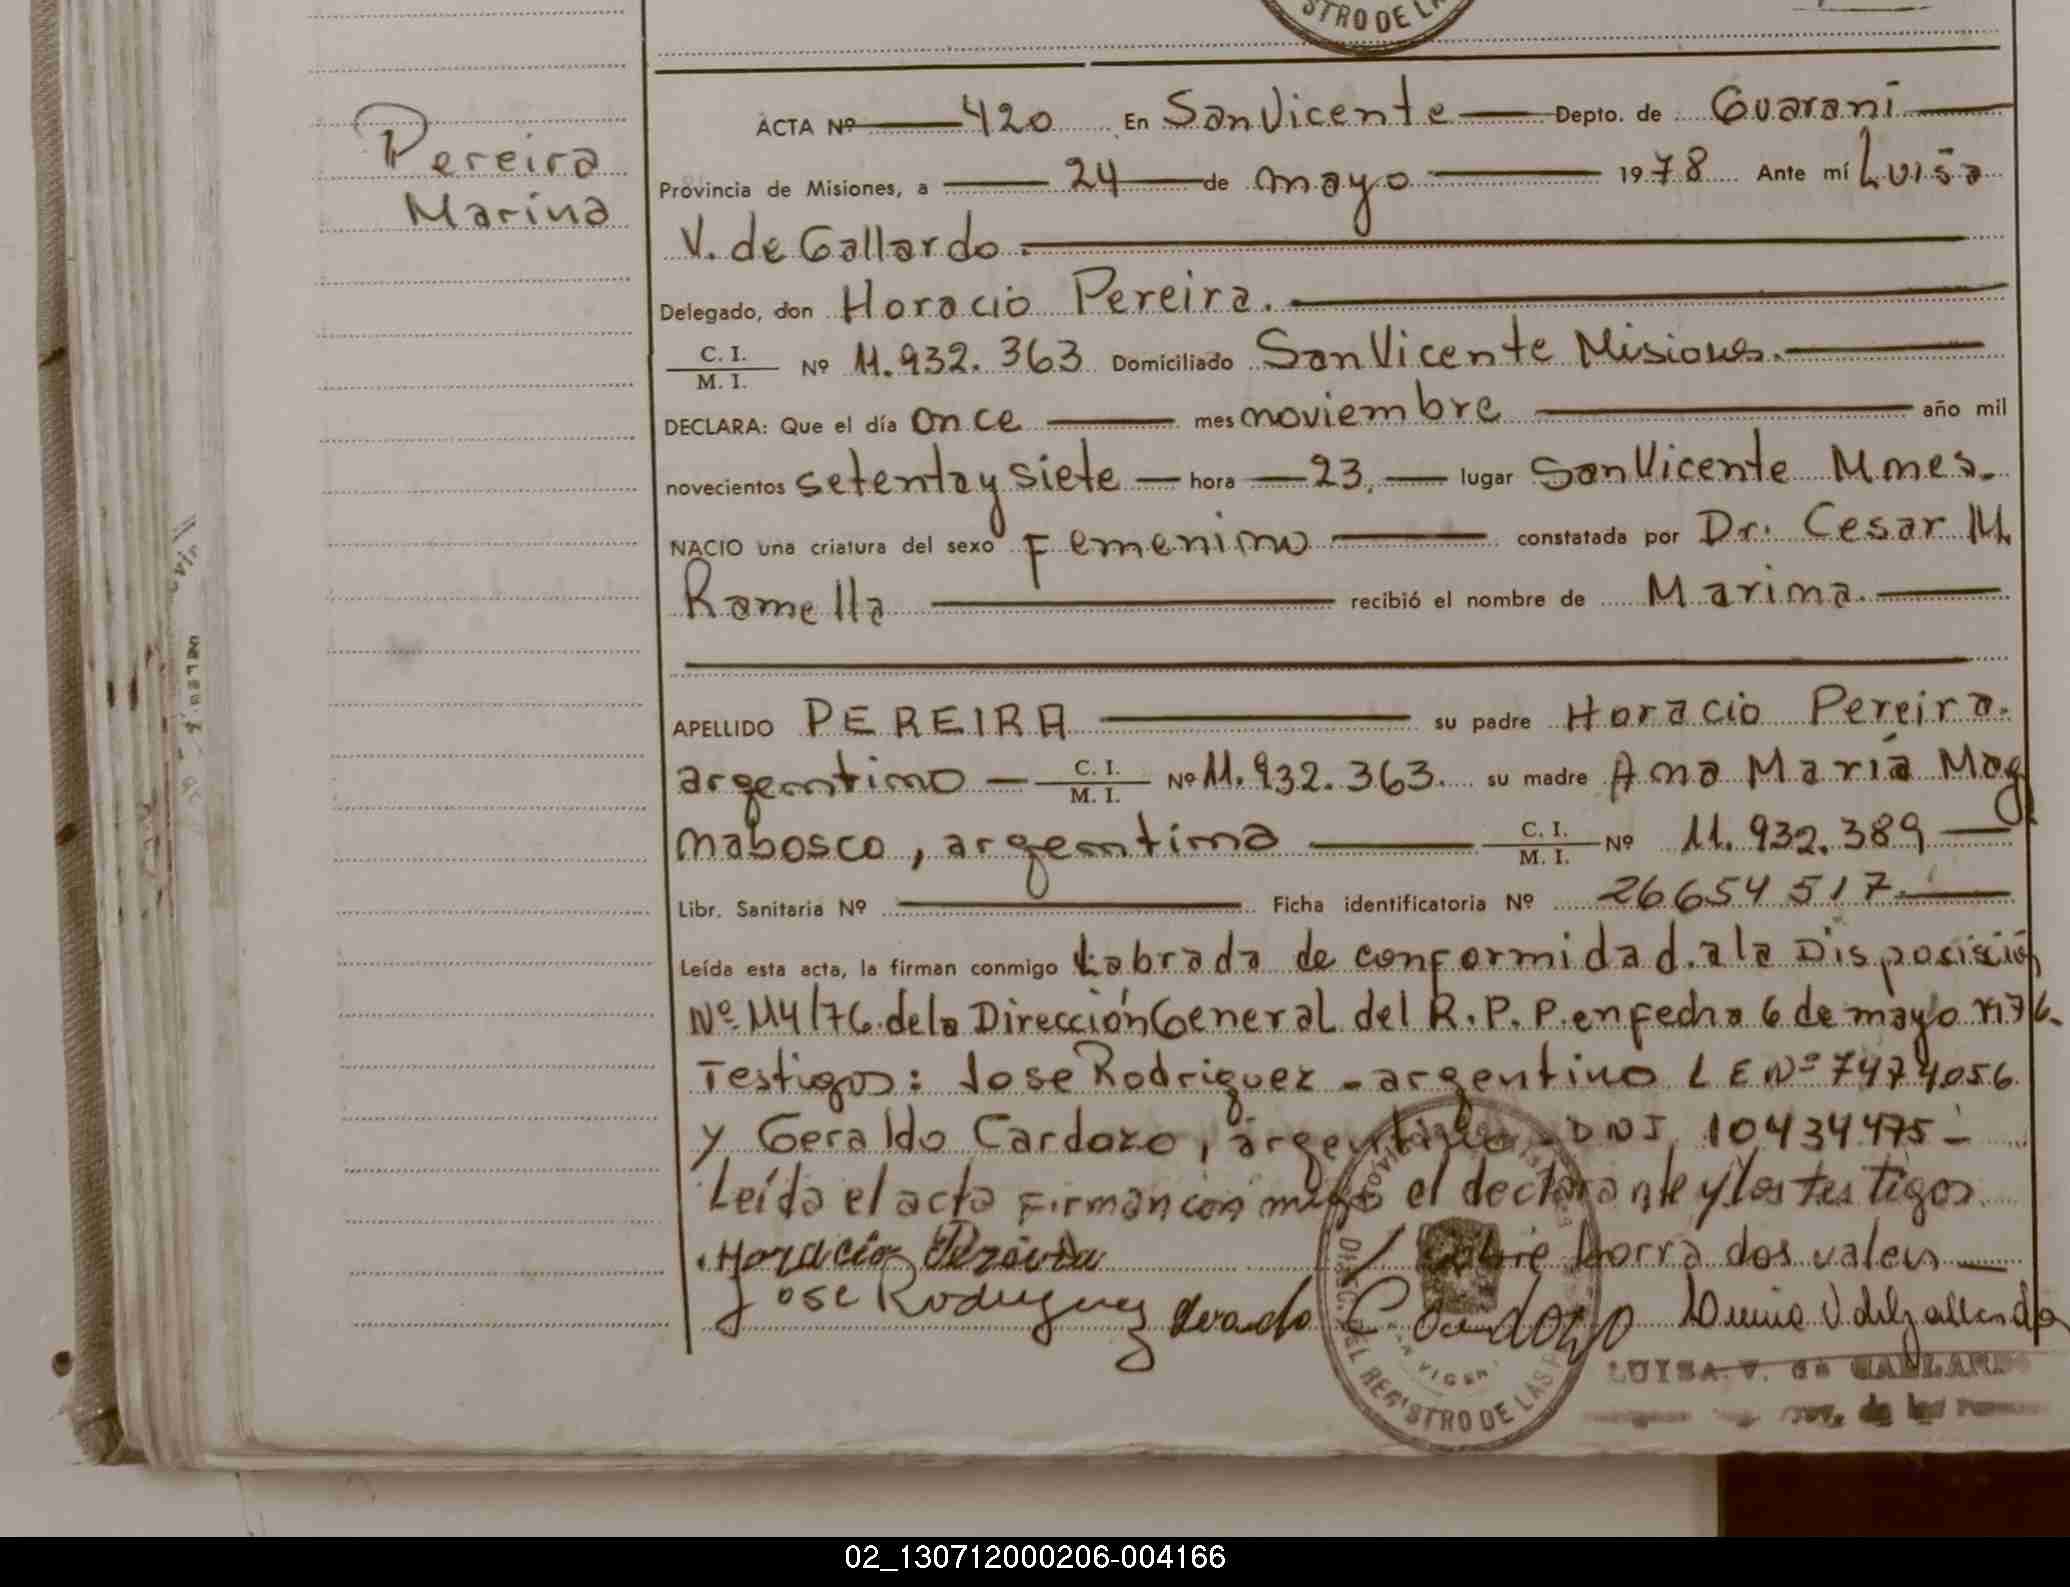 STRO DE LA
Pereira
Marina
ACTA Nº 420 En San Vicente Depto. de Guaraní
Provincia de Misiones, a 24 de mayo 1978 Ante mí Luisa
V. de Gallardo.
Delegado, don Horacio Pereira.
C. I.
M. I. Nº 11.932.363 Domiciliado San Vicente Misiones.
DECLARA: Que el día once mes noviembre año mil
novecientos setenta y siete hora 23, lugar San Vicente Mnes.
NACIO una criatura del sexo Femenino constatada por Dr. Cesar M.
Ramella recibió el nombre de Marina.
APELLIDO PEREIRA su padre Horacio Pereira.
argentino C. I. M. I. Nº 11.932.363. su madre Ana María Mag
nabosco, argentina C. I. M. I. Nº 11.932.389
Libr. Sanitaria Nº Ficha identificatoria Nº 26654517.
Leída esta acta, la firman conmigo Labrada de conformidad a la Disposisción
Nº 114/76 de la Dirección General del R.P.P. en fecha 6 de mayo
Testigos: Jose Rodriguez - argentino L E Nº 7474056
y Geraldo Cardozo, argentino - DNI 10434475 -
Leída el acta firman con migo el declarante y los testigos
Horacio Pereira / sobre borra dos valen
Jose Rodriguez Cardozo
LUISA V. de GALLARDO
DEL REGISTRO DE LAS P
02_130712000206-004166